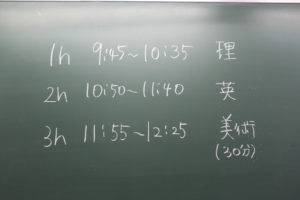 1h 9:45~10:35 理
2h 10:50~11:40 英
3h 11:55~12:25 美術
(30分)